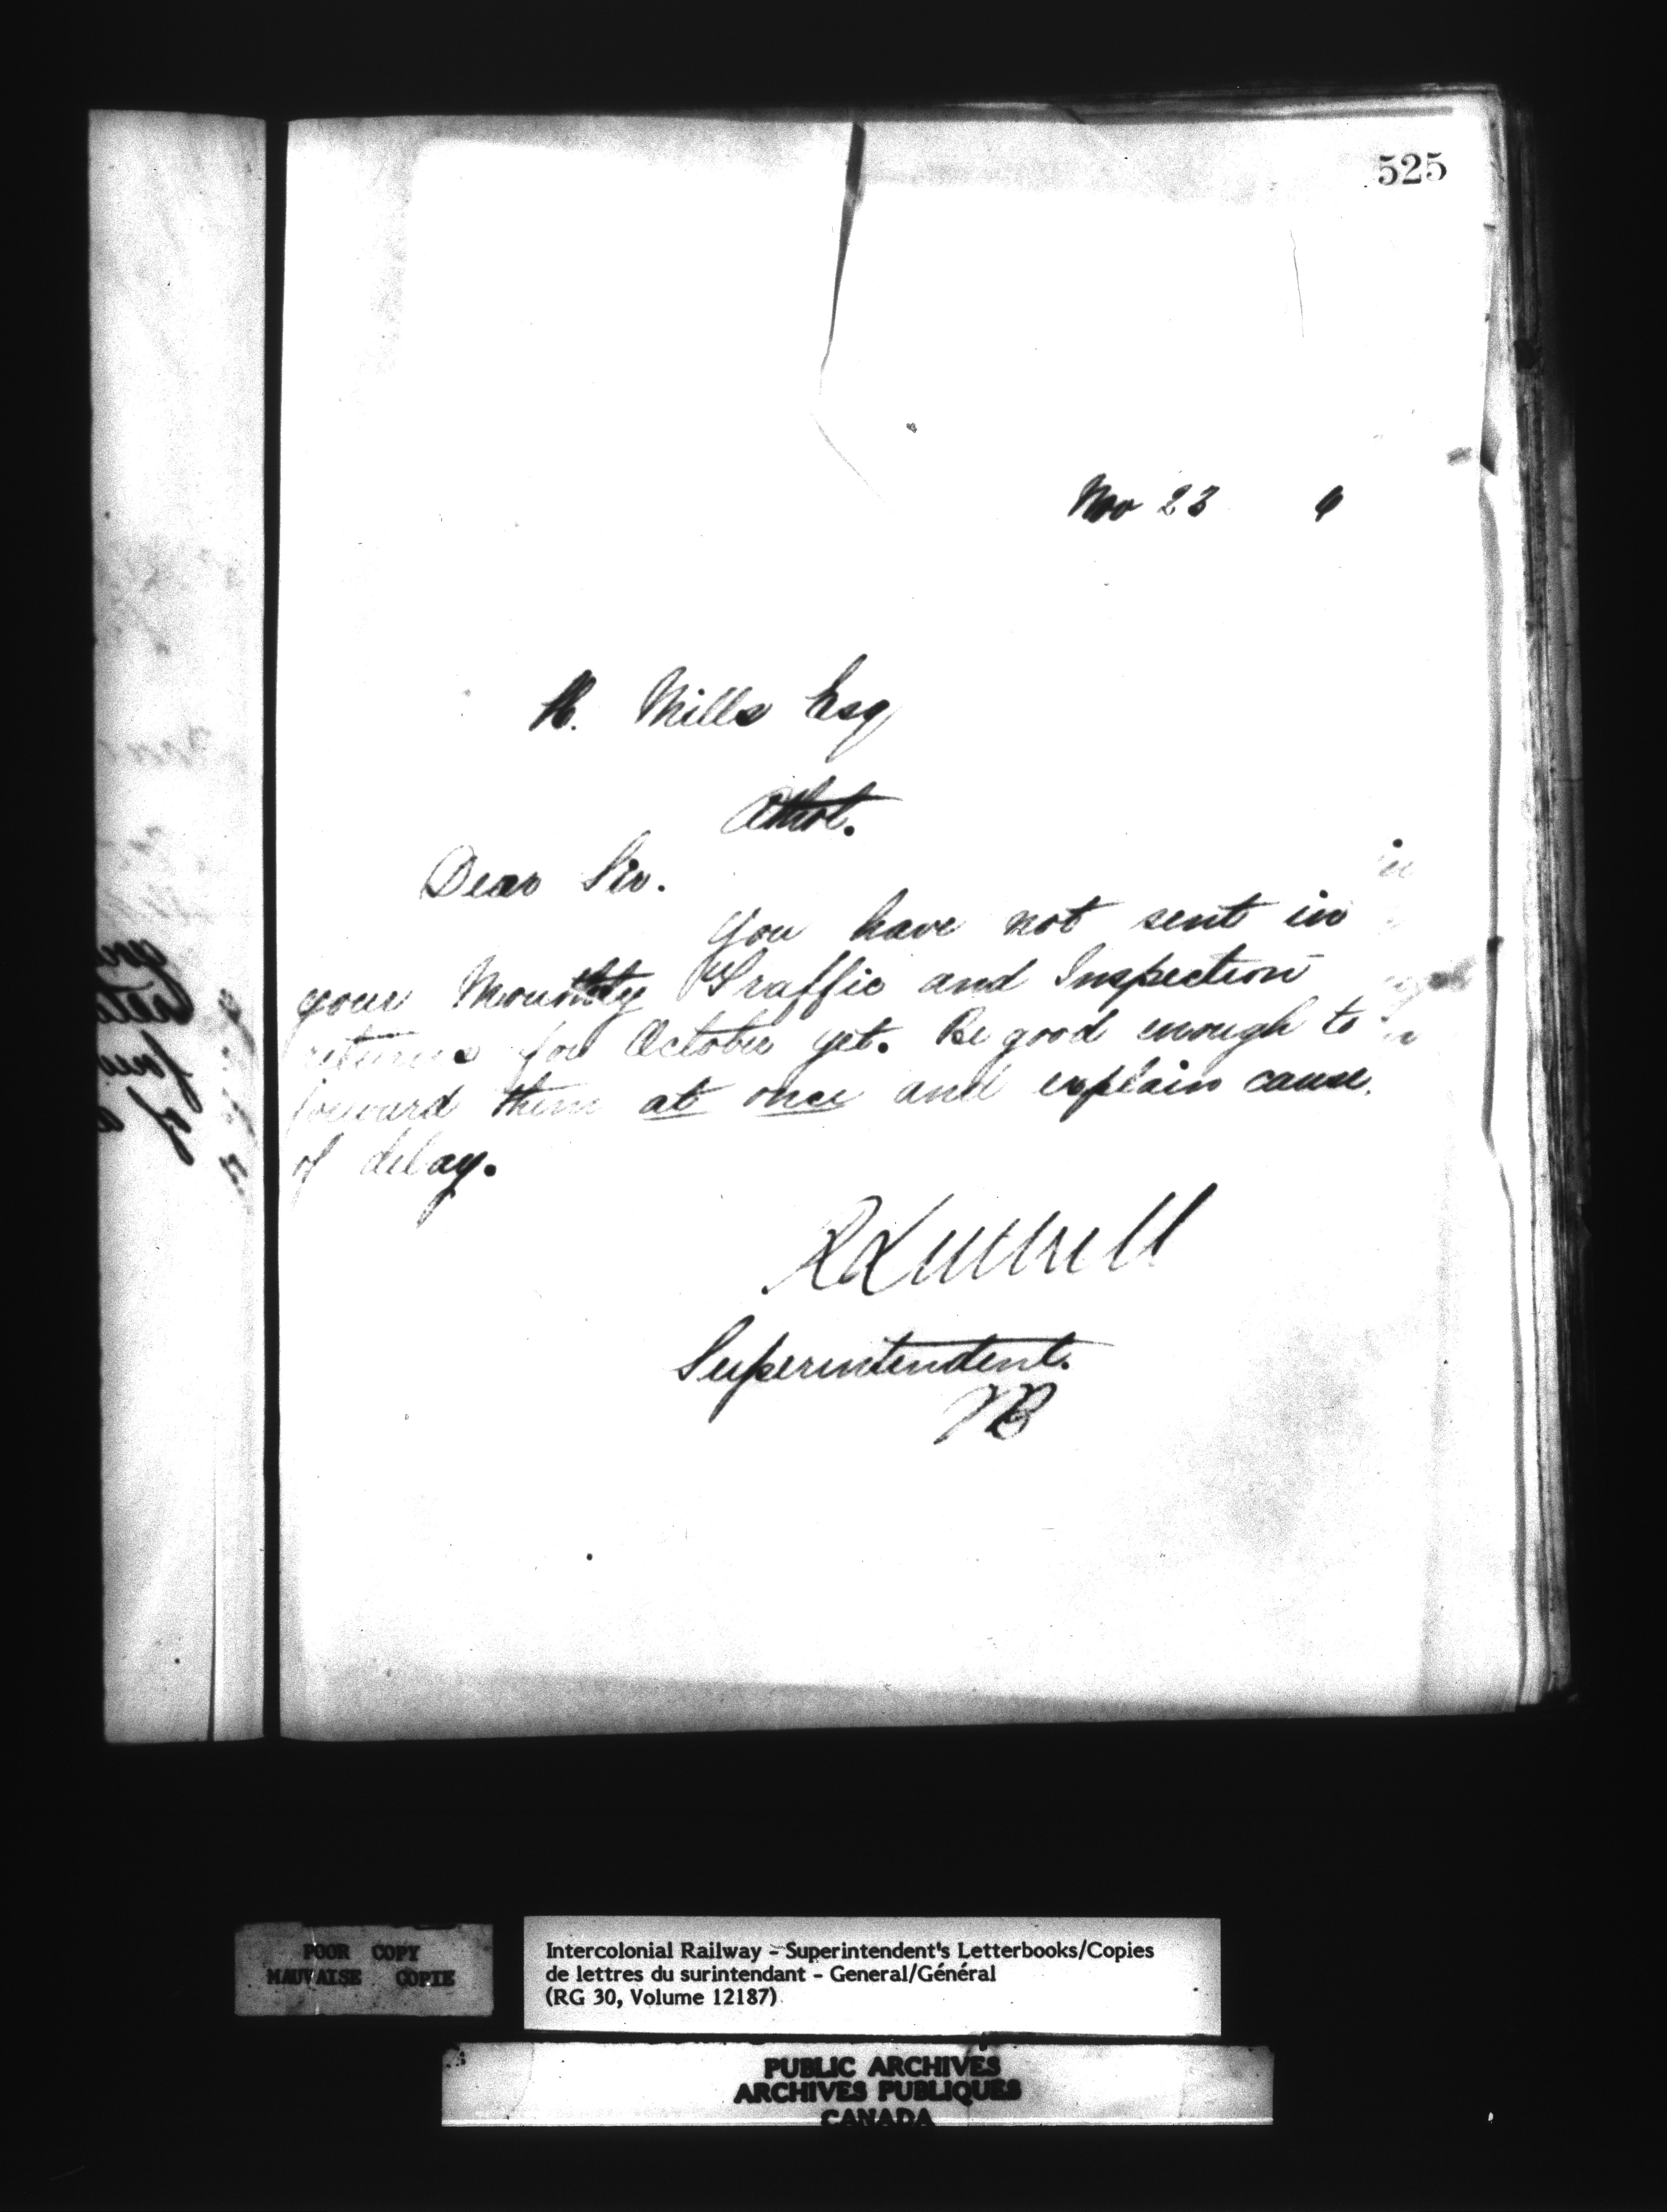 525
Nov 23 9
Mills Esq
Athol.
Dear Sir.
You have not sent in
your Mounthly Traffic and Inspection
returns for October yet. Be good enough to
forward them at once and explain cause
of delay.
R Luttrell
Superintendent.
POOR COPY
MAUVAISE COPIE
Intercolonial Railway - Superintendent's Letterbooks/Copies
de lettres du surintendant - General/Général
(RG 30, Volume 12187)
PUBLIC ARCHIVES
ARCHIVES PUBLIQUES
CANADA